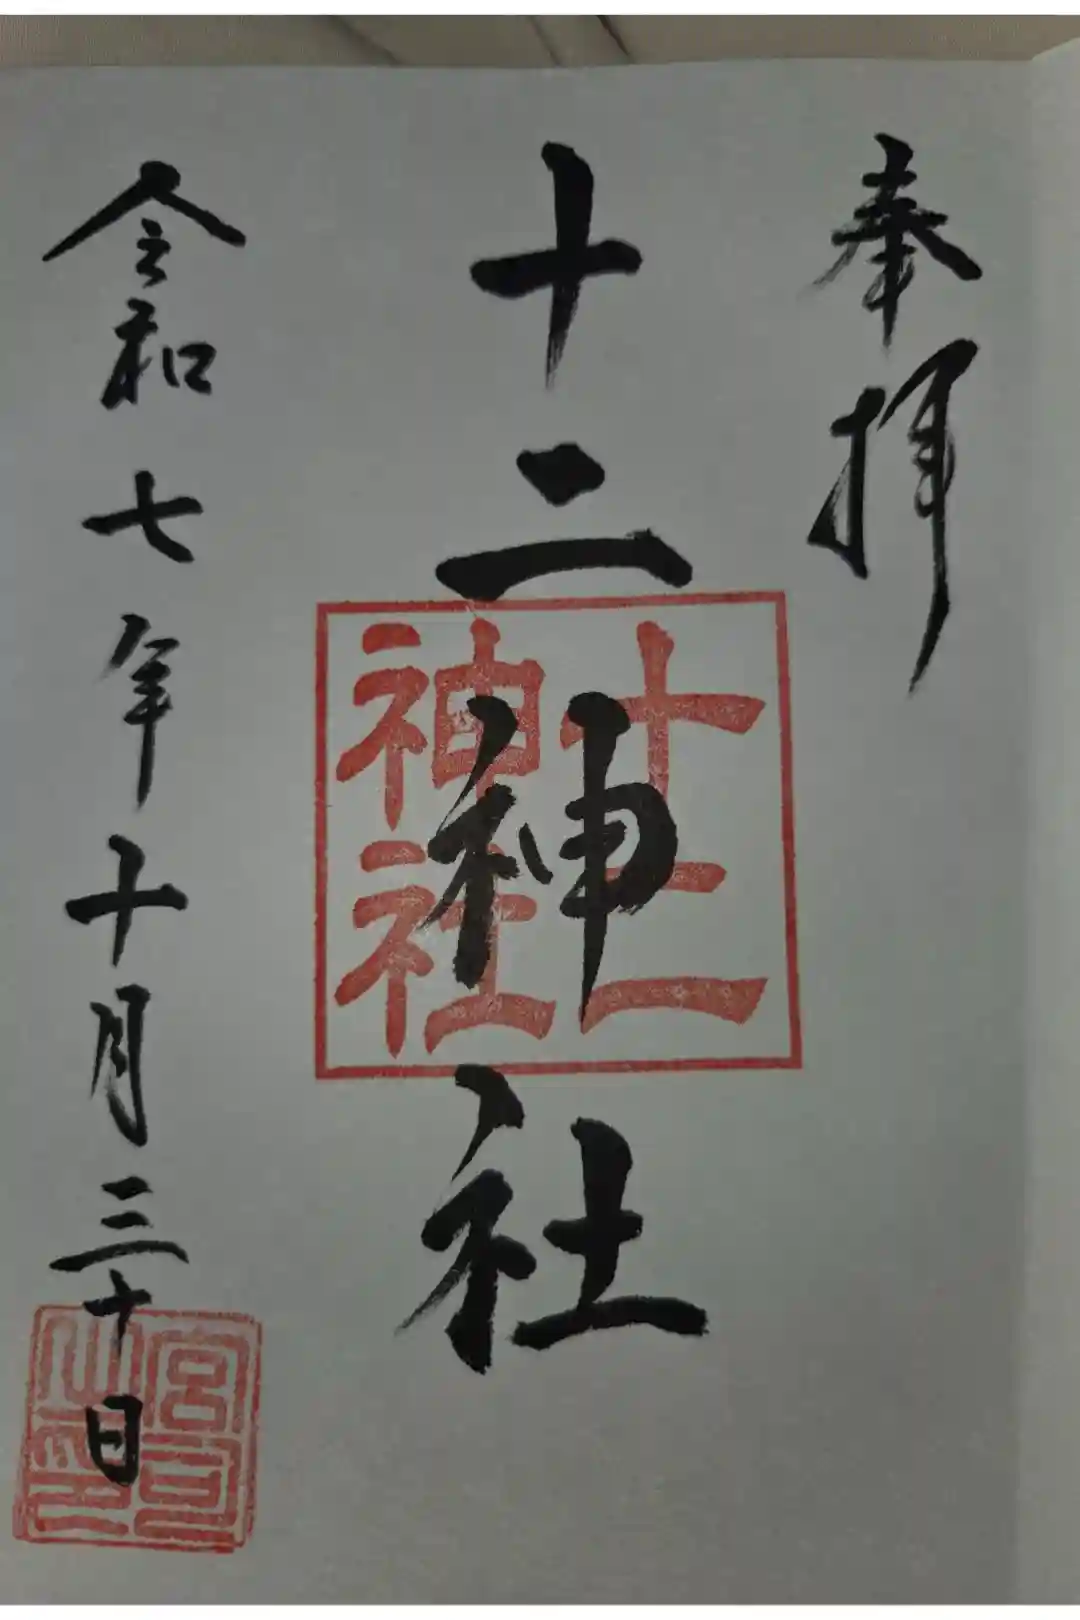 奉拝
十二神社
十二
神社
令和七年十月三十日
宮司
之印